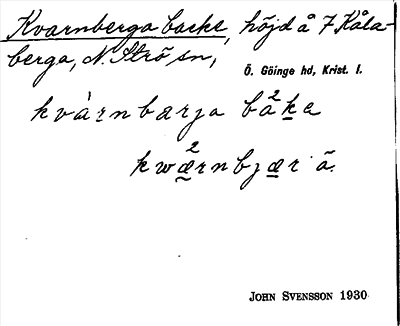 Kvarnberga backe, höjd å 7 Kåla-
berga, N. Strö sn,
Ö. Göinge hd, Krist. l.
kvàrnbærja bå²kɐ
kwæ²rnbjær ä.
JOHN SVENSSON 1930